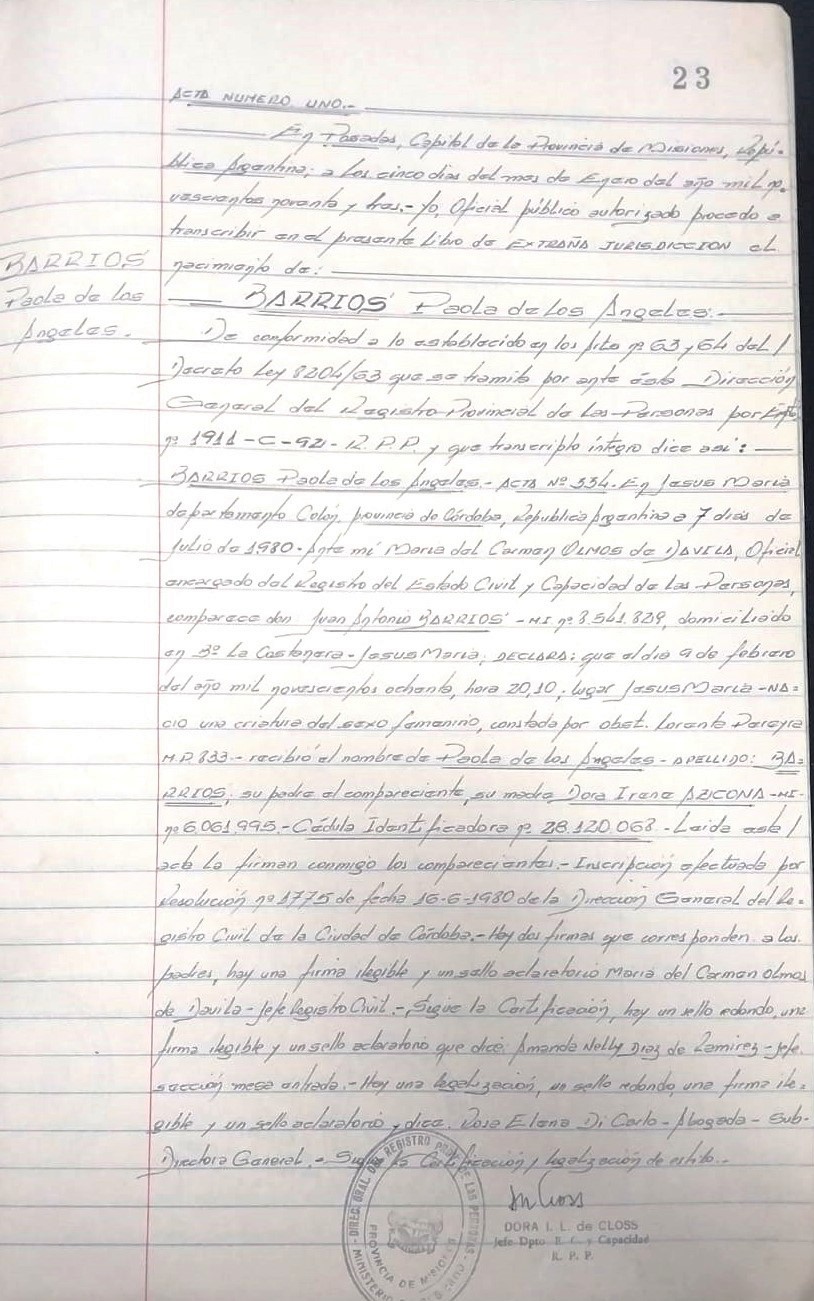 23
ACTA NUMERO UNO.-
En Posadas, Capital de la Provincia de Misiones, Repú-
blica Argentina; a los cinco dias del mes de Enero del año mil no-
vescientos noventa y tres.- Yo, Oficial público autorizado procedo a
transcribir en el presente Libro de EXTRAÑA JURISDICCION el
nacimiento de:
BARRIOS
Paola de los
Angeles.
BARRIOS Paola de los Angeles.-
De conformidad a lo establecido en los Arts nº 63 y 64 del /
Decreto Ley 8204/63 que se tramite por ante ésta Dirección
General del Registro Provincial de las Personas por Expte
nº 1911-C-92- R.P.P. y que transcripto íntegro dice así:
BARRIOS Paola de los Angeles.- ACTA Nº 334. En Jesus Maria
departamento Colón, provincia de Córdoba, Republica Argentina a 7 dias de
Julio de 1980- Ante mi Maria del Carmen OLMOS de DAVILA, Oficial
encargado del Registro del Estado Civil y Capacidad de las Personas,
comparece don Juan Antonio BARRIOS -MI nº 8.541.829, domiciliado
en Bº La Costanera- Jesus Maria; DECLARA: que el dia 9 de febrero
del año mil novescientos ochenta, hora 20,10; lugar Jesus Maria -NA=
CIO una criatura del sexo femenino, constada por obst. Lorente Pereyra
M.P. 833- recibió el nombre de Paola de los Angeles- APELLIDO: BA=
RRIOS; su padre el compareciente, su madre Dora Irene AZICONA -MI-
nº 6.061.995.- Cédula Identificadora nº 28.120.063.- Leida esta /
acta la firman conmigo los comparecientes.- Inscripción efectuada por
Resolución nº 1775 de fecha 16-6-1980 de la Dirección General del Re=
gistro Civil de la Ciudad de Córdoba.- Hay dos firmas que corresponden a los
padres, hay una firma ilegible y un sello aclaratorio Maria del Carman Olmos
de Davila- Jefe Registro Civil.- Sigue la Certificación, hay un sello redondo, una
firma ilegible y un sello aclaratorio que dice: Amanda Nelly Diaz de Ramirez- Jefe
sección mesa entrada.- Hay una legalización, un sello redondo, una firma ile=
gible y un sello aclaratorio y dice. Rosa Elena Di Carlo- Abogada- Sub-
Directora General.- Sigue la Certificación y legalización de estilo.-
DORA I. L. de CLOSS
Jefe Dpto R. C. y Capacidad
R. P. P.
PROVINCIA DE MISIONES